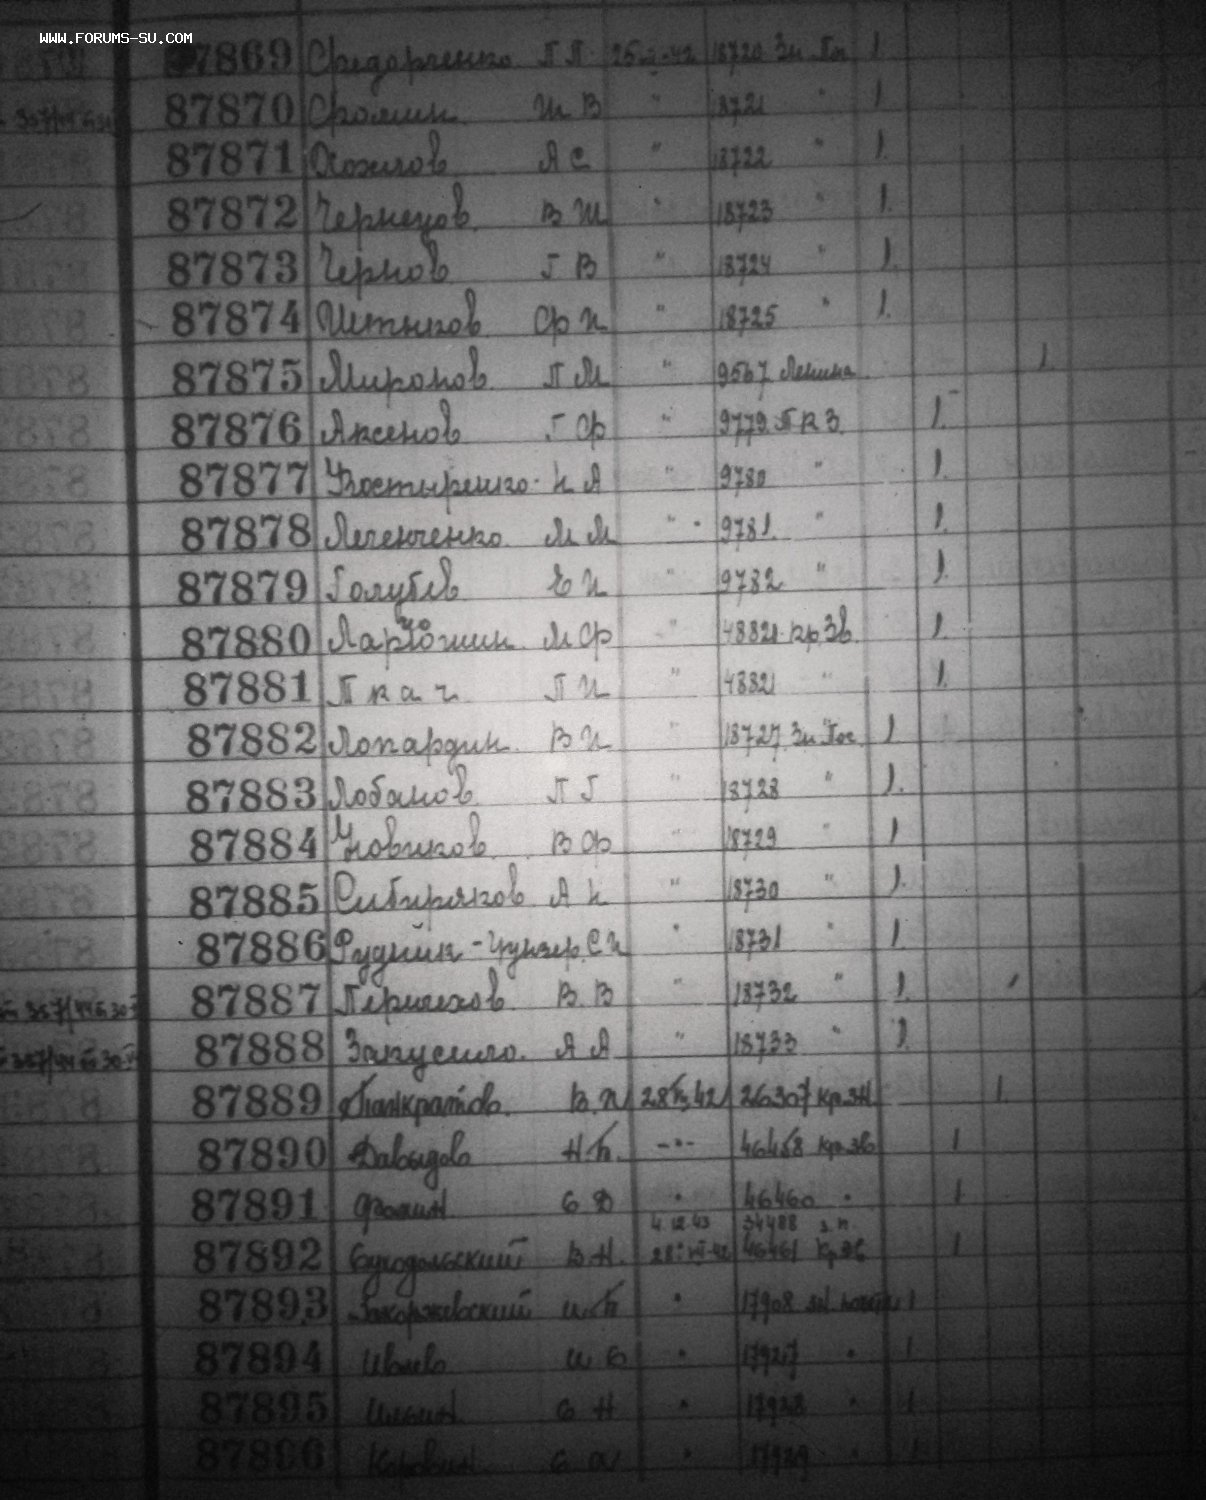 WWW.FORUMS-SU.COM
87869 Федорченко П П 18720 Зн. Поч 1
87870 Фролин И В " 18721 " 1
87871 Хохлов А С " 18722 " 1.
87872 Чернецов В И " 18723 " 1.
87873 Чернов Г В " 18724 " 1.
87874 Ф И " 18725 " 1.
87875 Миронов П М " 9567 Ленина 1
87876 Аксенов Г Ф " 9779 П К З 1.
87877 Костырешко Н Я " 9780 " 1.
87878 М М " 9781 " 1.
87879 Голубев Е И " 9782 " 1.
87880 М Ф " 48820 Кр.Зв. 1.
87881 Ткач П И " 48821 " 1.
87882 Лопардин В И " 18727 Зн. Поч 1
87883 Лобанов П Г " 18728 " 1.
87884 Новиков В Ф " 18729 " 1
87885 Сибиряков А Н " 18730 " 1.
87886 С И " 18731 " 1.
87887 Першехов В. В " 18732 " 1.
357/44 от 30
87888 А А " 18733 " 1.
357/44 от 30
87889 Панкратов В. И 28 42 26307 Кр.ЗН. 1.
87890 Давыдов Н. П. -"- 46458 Кр.Зв 1
87891 Фомин 46460 " 1
4.12.43 34488 з.п.
87892 Суходольский В.Н. 46461 Кр.Зв 1
87893 Закоржевский И П " 17908 1
87894 Ивлев " 17927 " 1
87895 Ильин " 17928 " 1
87896 " 17929 " 1